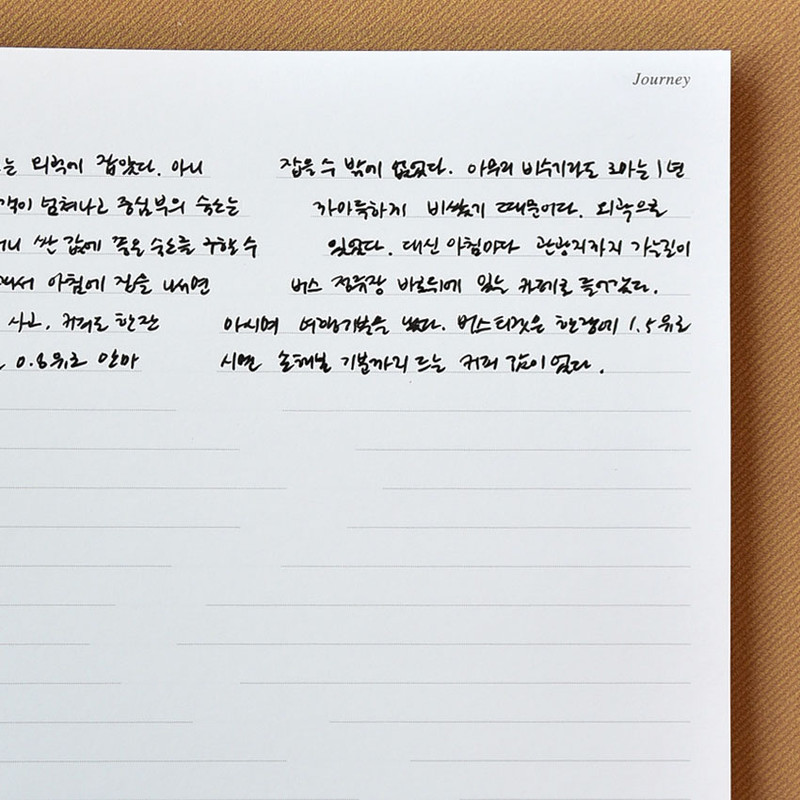 Journey
는 외곽에 잡았다. 아니 잡을 수 밖에 없었다. 아무리 비수기라도 3아는 1년
객이 넘쳐나고 중심부의 숙소는 까아득하게 비쌌기 때문이다. 외곽으로
싼 값에 좋은 숙소를 구할 수 있었다. 대신 아침마다 관광지까지 가는길이
아침에 길을 나서면 버스 정류장 바로뒤에 있는 카페로 들어갔다.
사고, 커피도 한잔 마시며 여행기분을 냈다. 버스티켓은 한장에 1.5유로
0.8유로 인마 시면 손해볼 기분까지 드는 커피 값이 었다.